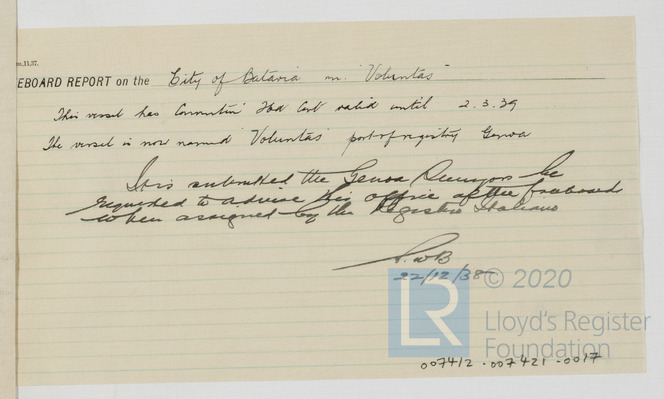 m.11,37.
EBOARD REPORT on the City of Batavia now "Voluntas"
This vessel has Convention Fbd Cert valid until 2.3.39
The vessel is now named "Voluntas" port of registry Genoa
It is submitted the Genoa Surveyors be
requested to advise this office of the freeboards
when assigned by the Registro Italiano
22/12/38
LR © 2020
Lloyd's Register
Foundation
007412-007421-0017